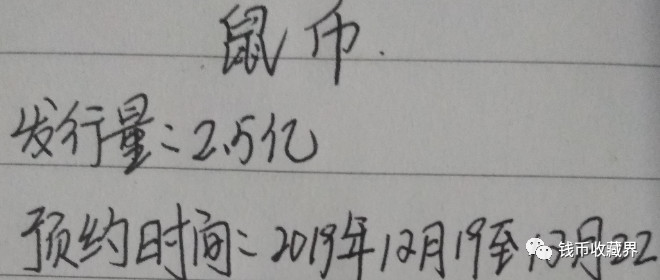 鼠币.
发行量:2.5亿
预约时间:2019年12月19至12月22
钱币收藏界